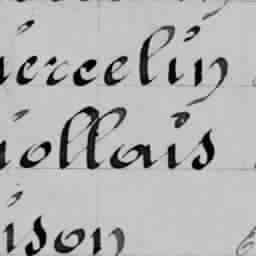 iercelin
iollais
ison